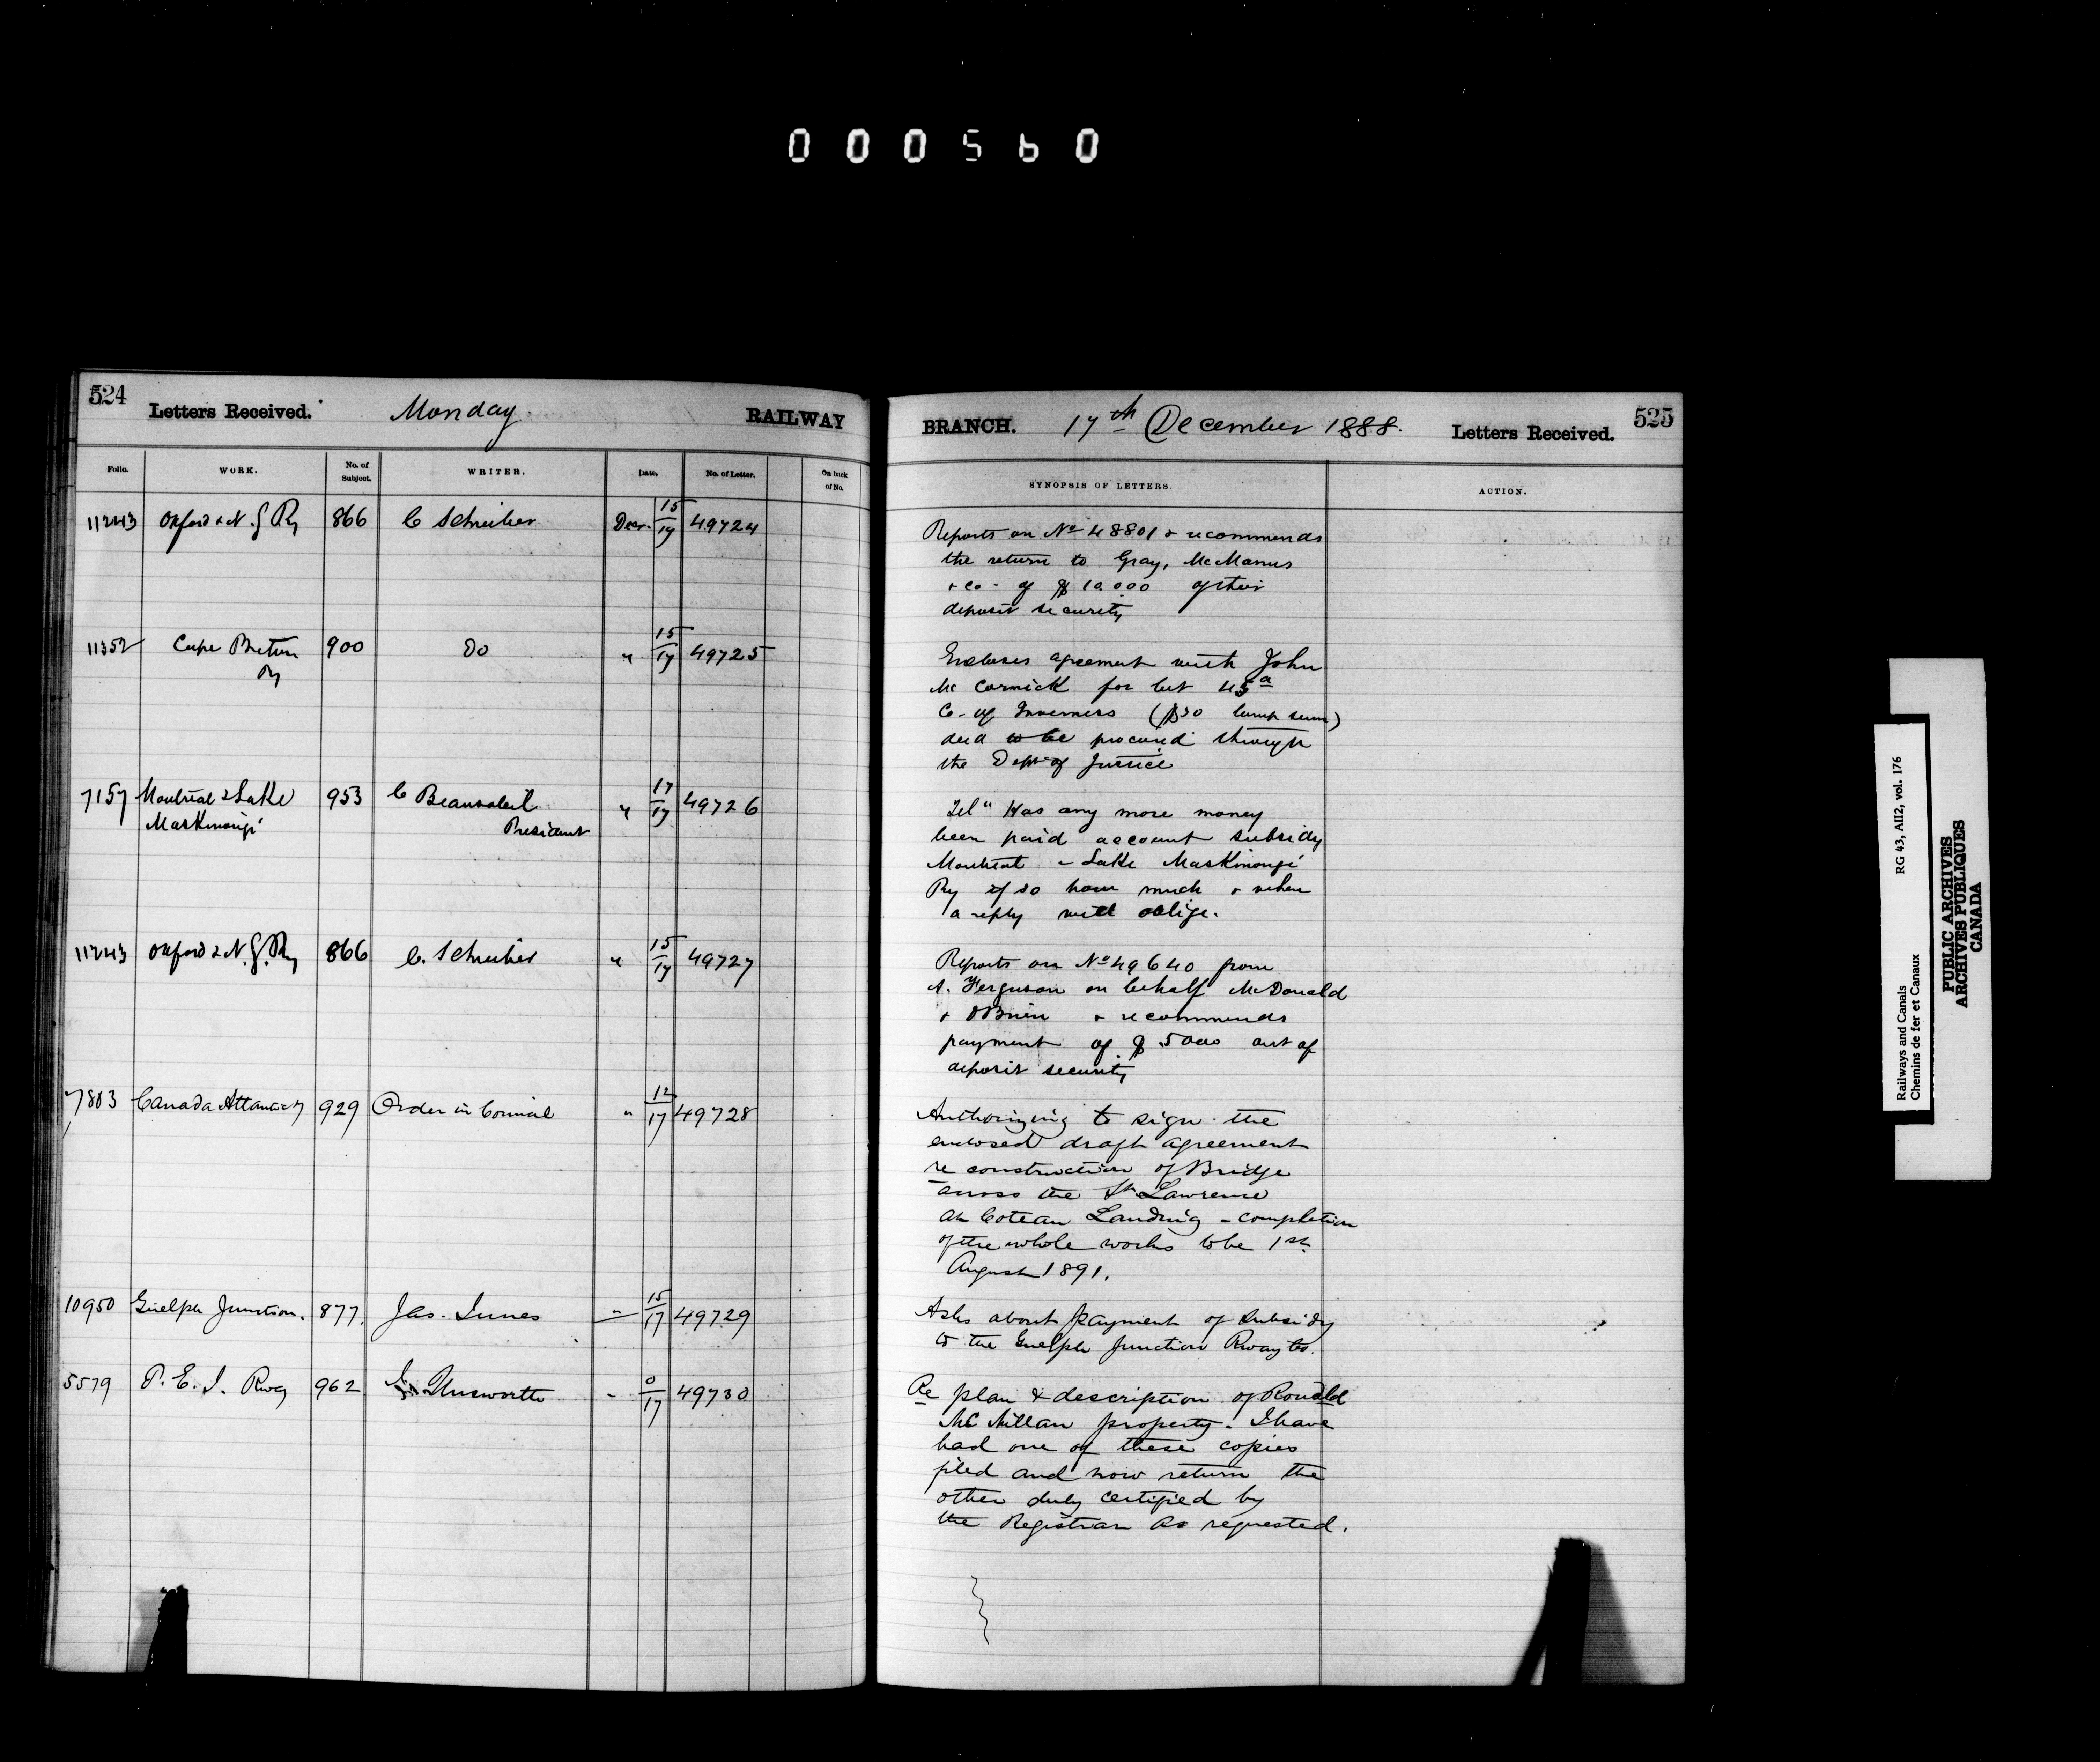 000560
524
Letters Received.
Monday
RAILWAY
BRANCH.
17th December 1888.
Letters Received.
525
Folio.
WORK.
No. of Subject.
WRITER.
Date.
No. of Letter.
On back of No.
SYNOPSIS OF LETTERS
ACTION.
11243 Oxford & N. G Ry 866 C Schreiber Decr. 15/17 49724
Reports on No 48801 & recommends
the return to Gray, McManus
& Co - of $10.000 of their
deposit security
11352 Cape Breton Ry 900 Do " 15/17 49725
Encloses agreement with John
McCormick for lot 45a
Co - of Inverness ($30 lump sum)
deed to be procured through
the Dept of Justice
7157 Montreal & Lake Maskinongé 953 C Beausoleil President " 17/17 49726
Tel " Has any more money
been paid account subsidy
Montreal & Lake Maskinongé
Ry if so how much & when
a reply will oblige.
11243 Oxford & N. G. Ry 866 C. Schreiber " 15/17 49727
Reports on No 49640 from
A. Ferguson on behalf McDonald
& OBrien & recommends
payment of $5000 out of
deposit security
7803 Canada Atlantic Ry 929 Order in Council " 12/17 49728
Authorizing to sign the
enclosed draft agreement
re construction of Bridge
across the St Lawrence
at Coteau Landing - completion
of the whole works to be 1st
August 1891.
10950 Guelph Junction. 877. Jas. Innes " 15/17 49729
Asks about payment of subsidy
to the Guelph Junction Rway Co.
5579 P. E. I. Rwy 962 Unsworth " 0/17 49730
Re plan & description of Ronald
McMillan property. I have
had one of these copies
filed and now return the
other duly certified by
the Registrar as requested.
Railways and Canals
Chemins de fer et Canaux
RG 43, AII2, vol. 176
PUBLIC ARCHIVES
ARCHIVES PUBLIQUES
CANADA